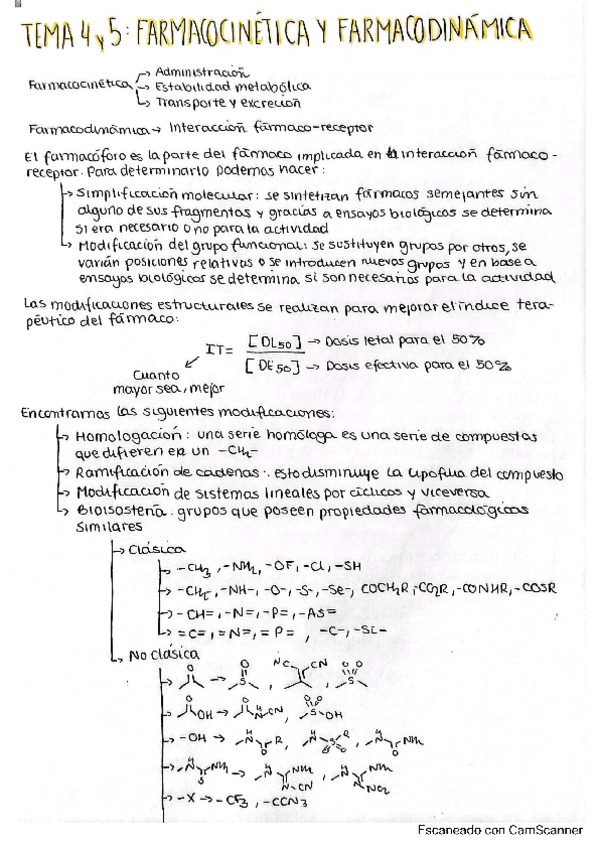 TEMA 4 y 5: FARMACOCINÉTICA Y FARMACODINÁMICA
Farmacocinética → Administración
→ Estabilidad metabólica
→ Transporte y excreción
Farmacodinámica → Interacción fármaco-receptor
El farmacóforo es la parte del fármaco implicada en la interacción fármaco-
receptor. Para determinarlo podemos hacer:
→ Simplificación molecular: se sintetizan fármacos semejantes sin
alguno de sus fragmentos y gracias a ensayos biológicos se determina
si era necesario o no para la actividad
→ Modificación del grupo funcional: se sustituyen grupos por otros, se
varían posiciones relativas o se introducen nuevos grupos y en base a
ensayos biológicos se determina si son necesarios para la actividad
Las modificaciones estructurales se realizan para mejorar el índice tera-
péutico del fármaco:
IT= [DL50] → Dosis letal para el 50%
[DE50] → Dosis efectiva para el 50%
Cuanto
mayor sea, mejor
Encontramos las siguientes modificaciones:
→ Homologación: una serie homóloga es una serie de compuestos
que difieren en un -CH2-
→ Ramificación de cadenas: esto disminuye la lipofilia del compuesto
→ Modificación de sistemas lineales por cíclicos y viceversa
→ Bioisostería: grupos que poseen propiedades farmacológicas
similares
→ Clásica
→ -CH3, -NH2, -OF, -Cl, -SH
→ -CH2-, -NH-, -O-, -S-, -Se-, COCH2R, -CO2R, -CONHR, -COSR
→ -CH=, -N=, -P=, -As=
→ =C=, =N=, =P=, -C-, -Si-
→ No clásica
O → O S, NC CN, O O S
O OH → O N H CN, O O S OH
→ -OH → N H O R, N H S O O R, N H O NH2
→ N H S NH2 → N H NH2 N-CN, N H NH2 NO2
→ -X → -CF3, -CCN3
Escaneado con CamScanner